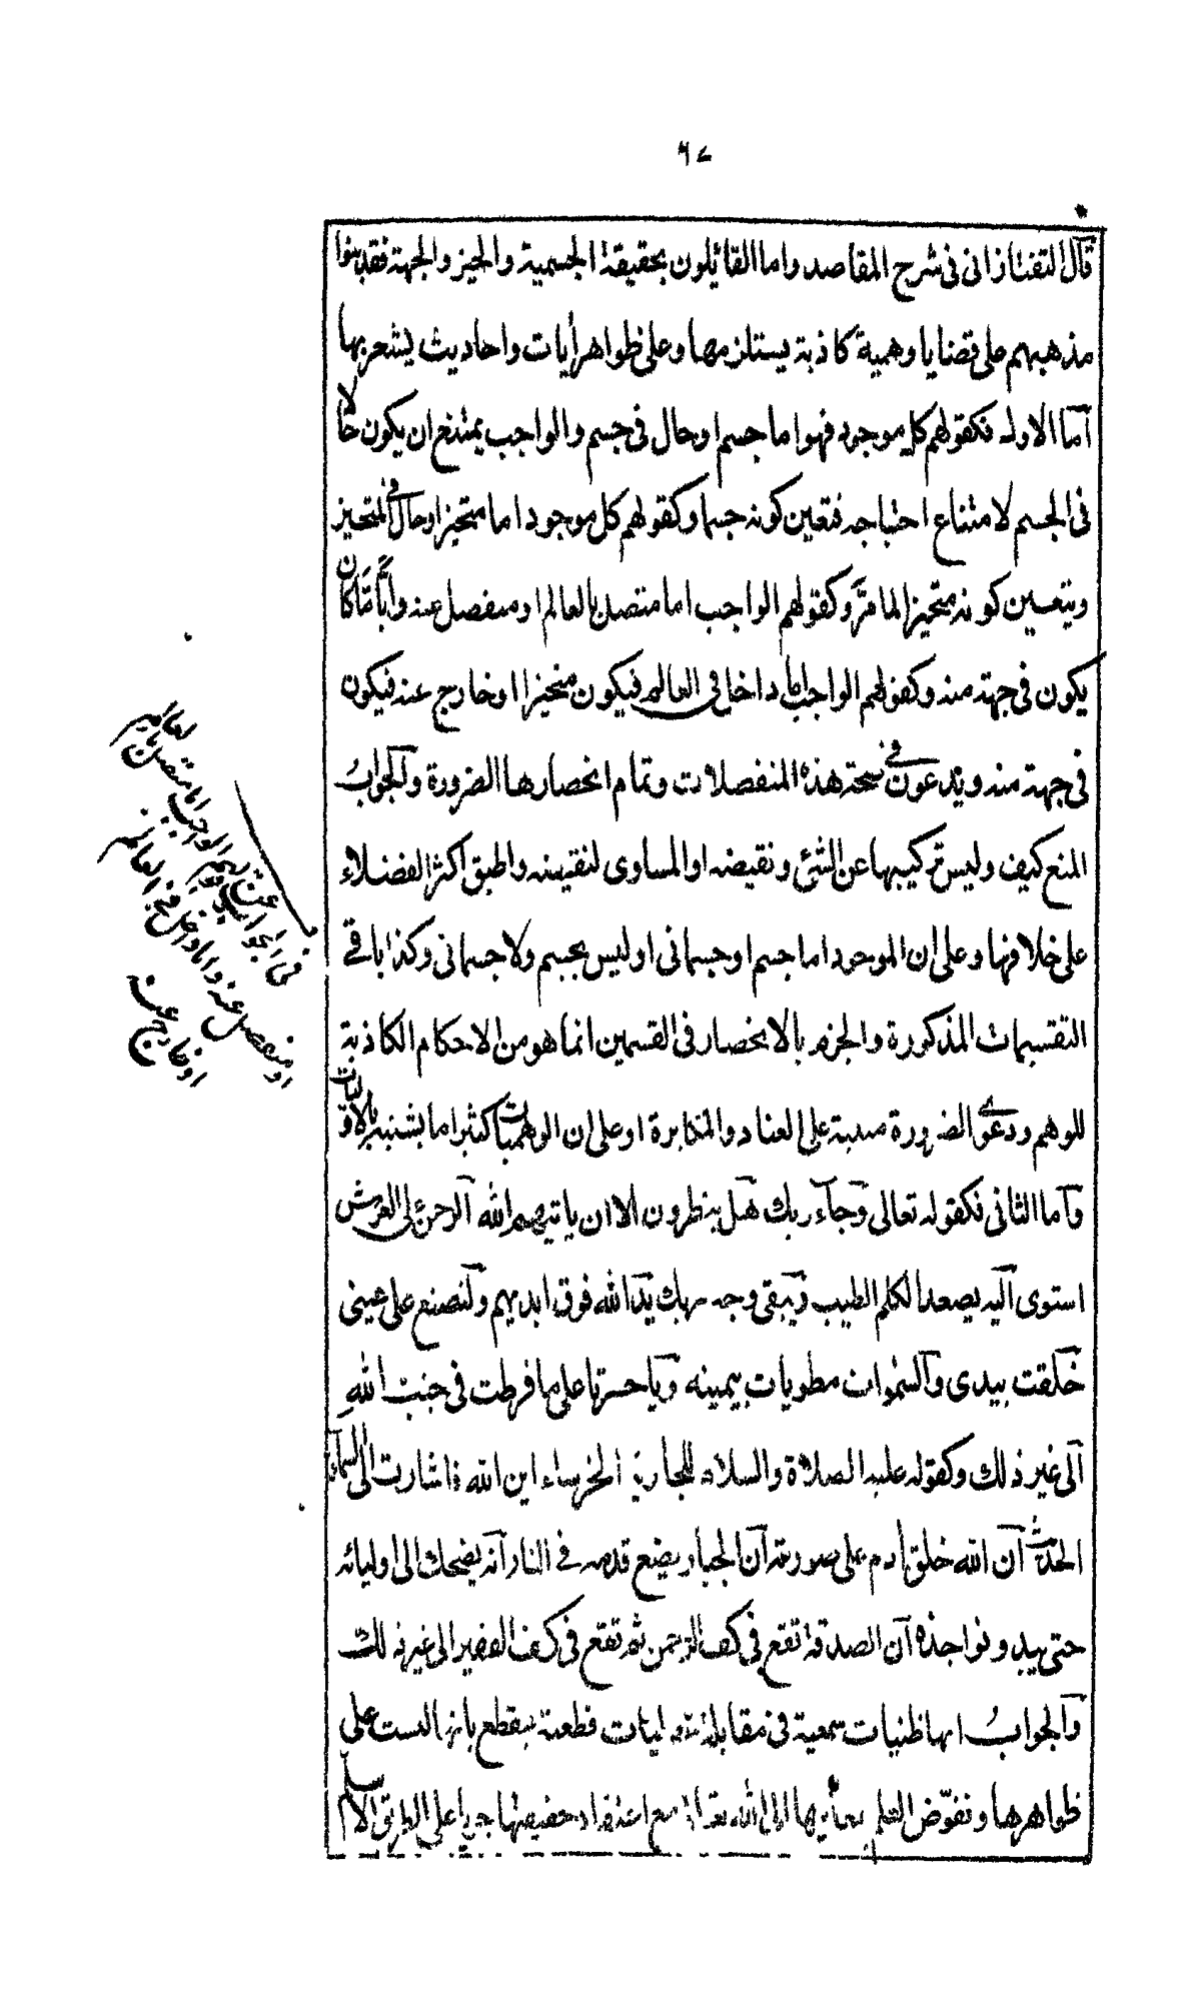 ٦٧
قال التفتازانى فى شرح المقاصد واما القائلون بحقيقة الجسمية والحيز والجهة فقد بنوا
مذهبهم على قضايا وهمية كاذبة يستلزمها وعلى ظواهر أيات واحاديث يشعر بها
اما الاولى فكقولهم كل موجود فهو اما جسم او حال فى جسم والواجب يمتنع ان يكون حالا
فى الجسم لامتناع احتياجه فتعين كونه جسما وكقولهم كل موجود اما متحيز او حال فى المتحيز
ويتعين كونه متحيزا لما مرّ وكقولهم الواجب اما متصل بالعالم او منفصل عنه وأيًّا مَّا كان
يكون فى جهة منه وكقولهم الواجب اما داخل فى العالم فيكون متحيزا او خارج عنه فيكون
فى جهة منه ويدعون فى صحة هذه المنفصلات وتمام انحصارها الضرورة والجوابُ
المنع كيف وليس تركيبها عن الشئ ونقيضه او المساوى لنقيضه واطبق اكثر الفضلاء
على خلافها وعلى ان الموجود اما جسم او جسمانى او ليس بجسم ولا جسمانى وكذا باقے
التقسيمات المذكورة والجزم بالانحصار فى القسمين انما هو من الاحكام الكاذبة
للوهم ودعوے الضرورة مبنية على العناد والمكابرة او على ان الوهميات كثيرا ما يشتبه بالاوليات
واما الثانى فكقوله تعالى وجآء ربك هل ينظرون الا ان ياتيهم الله الرحمن على العرش
استوى اليه يصعد الكلم الطيب ويبقى وجه ربك يد الله فوق ايديهم ولتصنع على عينى
خلقت بيدى والسموات مطويات بيمينه ويا حسرتا على ما فرطت فى جنب اللهِ
الى غير ذلك وكقوله عليه الصلاة والسلام للجارية الخرساء اين الله فاشارت الى السمآء
الحديث ان الله خلق أدم على صورته ان الجبار يضع قدمه فے النار انه يضحك الى اوليائه
حتى يبدو نواجذه ان الصدقة تقع فى كف الرحمن ثم تقع فى كف الفقير الى غير ذلك
والجوابُ انها ظنيات سمعية فى مقابلة قطعية فيقطع بانها ليست على
ظواهرها ونفوّض العلم بمعانيها الى الله تعالى مع اعتقاد حقيقتها جريا على الطريق الاسلم
فى الجواب عن قولهم الواجب اما متصل بالعالم
او منفصل عنه واما داخل فى العالم
او خارج عنه